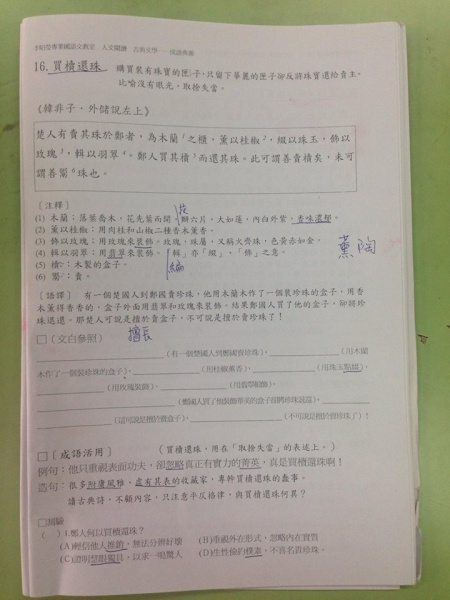 人文關讀 古典文學──成語典源
16.買櫝還珠 購買裝有珠寶的匣子,只留下華麗的匣子卻反將珠寶還給賣主。
比喻沒有眼光,取捨失當。
《韓非子‧外儲說左上》
楚人有賣其珠於鄭者,為木蘭1之櫃,薰以桂椒2,綴以珠玉,飾以
玫瑰3,輯以羽翠4。鄭人買其櫝5而還其珠。此可謂善賣櫝矣,未可
謂善鬻6珠也。
〔注釋〕
(1) 木蘭:落葉喬木,花先葉而開,花瓣六片,大如蓮,內白外紫,香味濃郁。
(2) 薰以桂椒:用肉桂和山椒二種香木薰香。
(3) 飾以玫瑰:用玫瑰來裝飾。玫瑰,珠屬,又稱火齊珠,色黃赤如金。
(4) 輯以羽翠:用翡翠來裝飾。「輯」亦「綴」、「飾」之意。
編
薰陶
(5) 櫝:木製的盒子。
(6) 鬻:賣。
〔語譯〕 有一個楚國人到鄭國賣珍珠,他用木蘭木作了一個裝珍珠的盒子,用香
木薰得香香的,盒子外面用翡翠和玫瑰來裝飾。結果鄭國人買了他的盒子,卻將珍
珠退還。那楚人可說是擅於賣盒子,不可說是擅於賣珍珠了!
擅長
□〔文白參照〕
(有一個楚國人到鄭國賣珍珠)。 (用木蘭
木作了一個裝珍珠的盒子)。 (用桂椒薰香)。 (用珠玉點綴)。
(用玫瑰裝飾)。 (用翡翠裝飾)。
(鄭國人買了他裝飾華美的盒子卻將珍珠退還)。
(這可說是擅於賣盒子)。 (不可說是擅於賣珍珠了)!
□〔成語活用〕 (買櫝還珠,用在「取捨失當」的表述上。)
例句:他只重視表面功夫,卻忽略真正有實力的菁英,真是買櫝還珠啊!
造句:很多附庸風雅、虛有其表的收藏家,專幹買櫝還珠的蠢事。
讀古典詩,不顧內容,只注意平仄格律,與買櫝還珠何異?
□測驗
( )1.鄭人何以買櫝還珠?
(A)輕信他人推銷,無法分辨好壞 (B)重視外在形式,忽略內在實質
(C)證明慧眼獨具,以求一鳴驚人 (D)生性儉約樸素,不喜名貴珍珠。